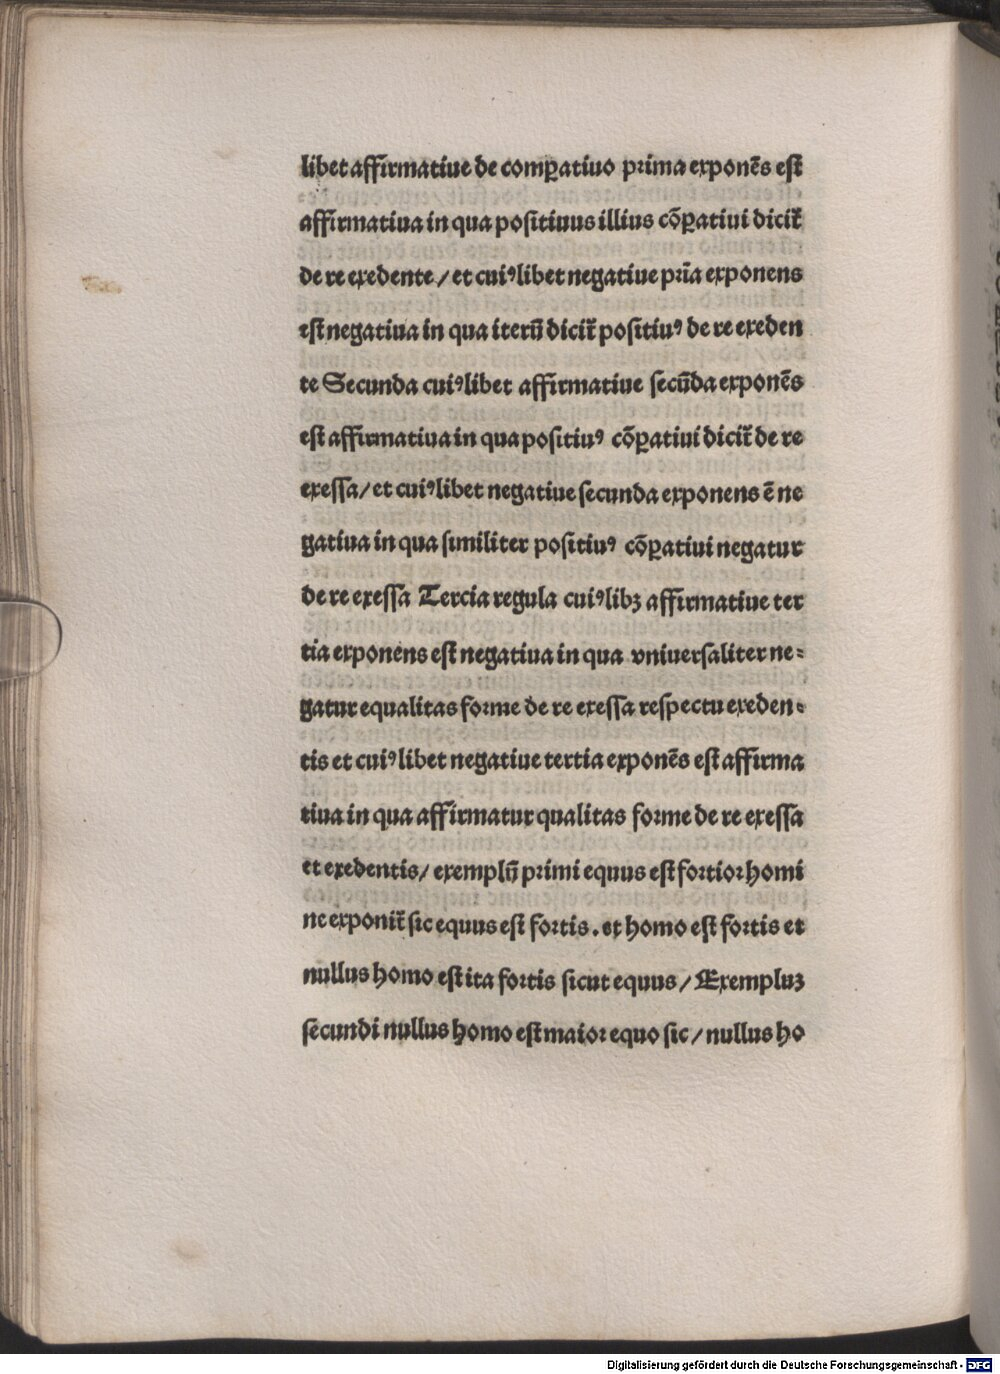 libet affirmatiue de comꝑatiuo prima exponēs est
affirmatiua in qua positiuus illius cōꝑatiui dicit᷑
de re exedente / et cuiꝰlibet negatiue pria̅ exponens
est negatiua in qua iterū dicit᷑ positiuꝰ de re exeden
te Secunda cuiꝰlibet affirmatiue secūda exponēs
est affirmatiua in qua positiuꝰ cōꝑatiui dicit᷑ de re
exessa / et cuiꝰlibet negatiue secunda exponens ē ne
gatiua in qua similiter positiuꝰ cōꝑatiui negatur
de re exessa Tercia regula cuiꝰlibꝫ affirmatiue ter
tia exponens est negatiua in qua vniuersaliter ne⸗
gatur equalitas forme de re exessa respectu exeden⸗
tis et cuiꝰlibet negatiue tertia exponēs est affirma
tiua in qua affirmatur qualitas forme de re exessa
et exedentis / exemplū primi equus est fortior homi
ne exponit᷑ sic equus est fortis . et homo est fortis et
nullus homo est ita fortis sicut equus / Exempluꝫ
secundi nullus homo est maior equo sic / nullus ho
Digitalisierung gefördert durch die Deutsche Forschungsgemeinschaft - DFG